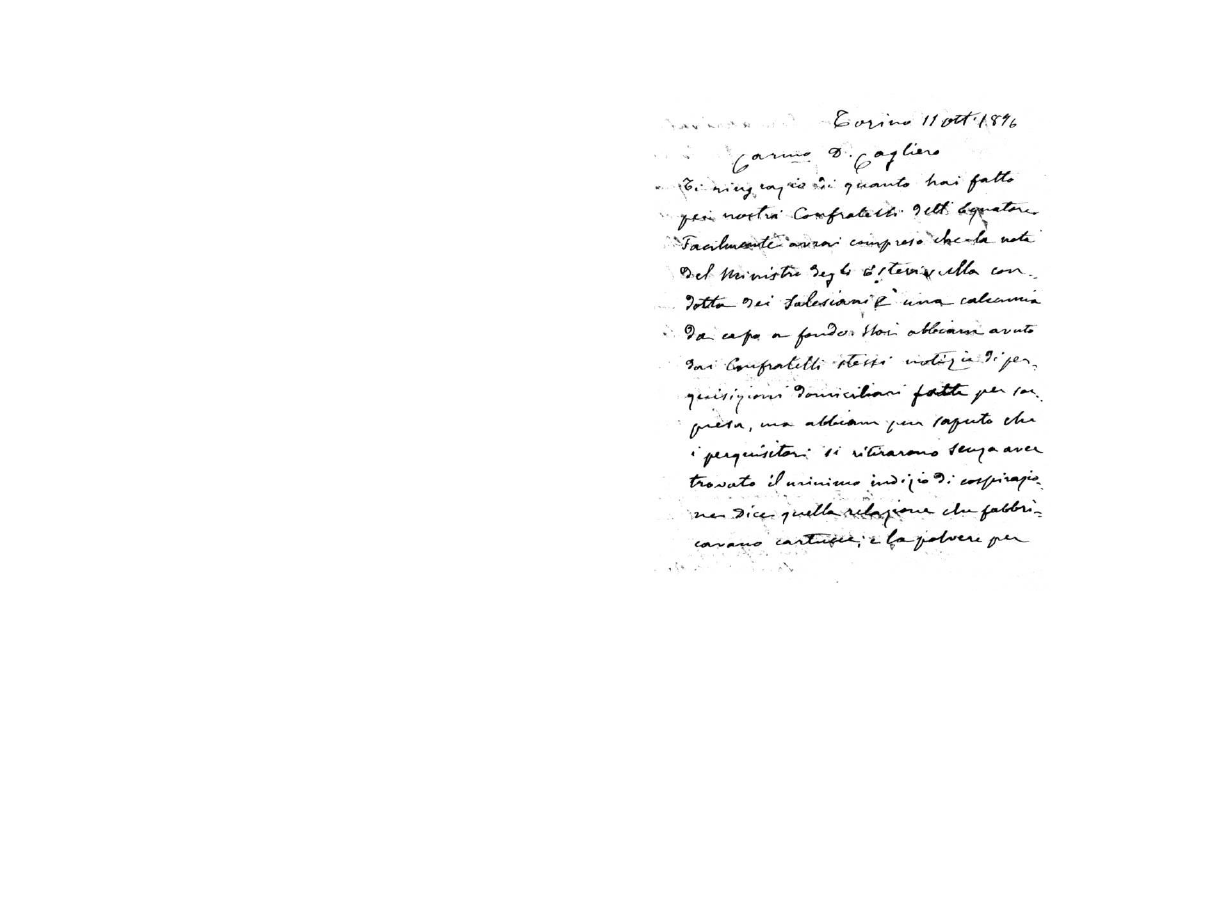 Torino 11 ott. 1896
Carmo D. Cagliero
Ti ringrazio di quanto hai fatto
pei nostri Confratelli dell'Equatore.
Facilmente avrai compreso che la nota
del Ministro degli Esteri sulla con-
dotta dei Salesiani è una calunnia
da capo a fondo. Noi abbiam avuto
dai Confratelli stessi notizia di per-
quisizioni domiciliari fatte per sor-
presa, ma abbiam pur saputo che
i perquisitori si ritirarono senza aver
trovato il minimo indizio di cospirazio
ne. Dice quella relazione che fabbri-
cavano cartucce; e la polvere per